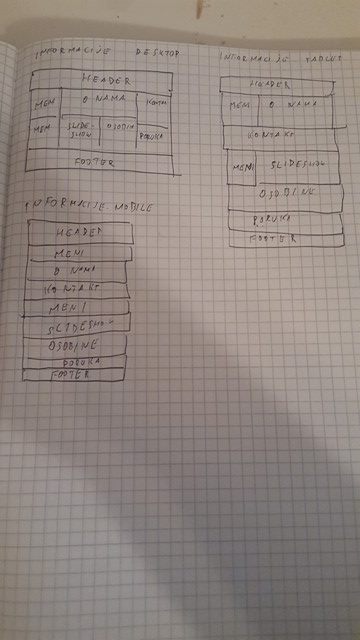 INFORMACIJE DESKTOP
HEADER
MENI O NAMA KONTAKT
MENI SLIDE- OSOBINE
SHOW PORUKA
FOOTER
INFORMACIJE TABLET
HEADER
MENI O NAMA
KONTAKT
MENI SLIDESHOW
OSOBINE
PORUKA
FOOTER
INFORMACIJE MOBILE
HEADER
MENI
O NAMA
KONTAKT
MENI
SLIDESHOW
OSOBINE
PORUKA
FOOTER